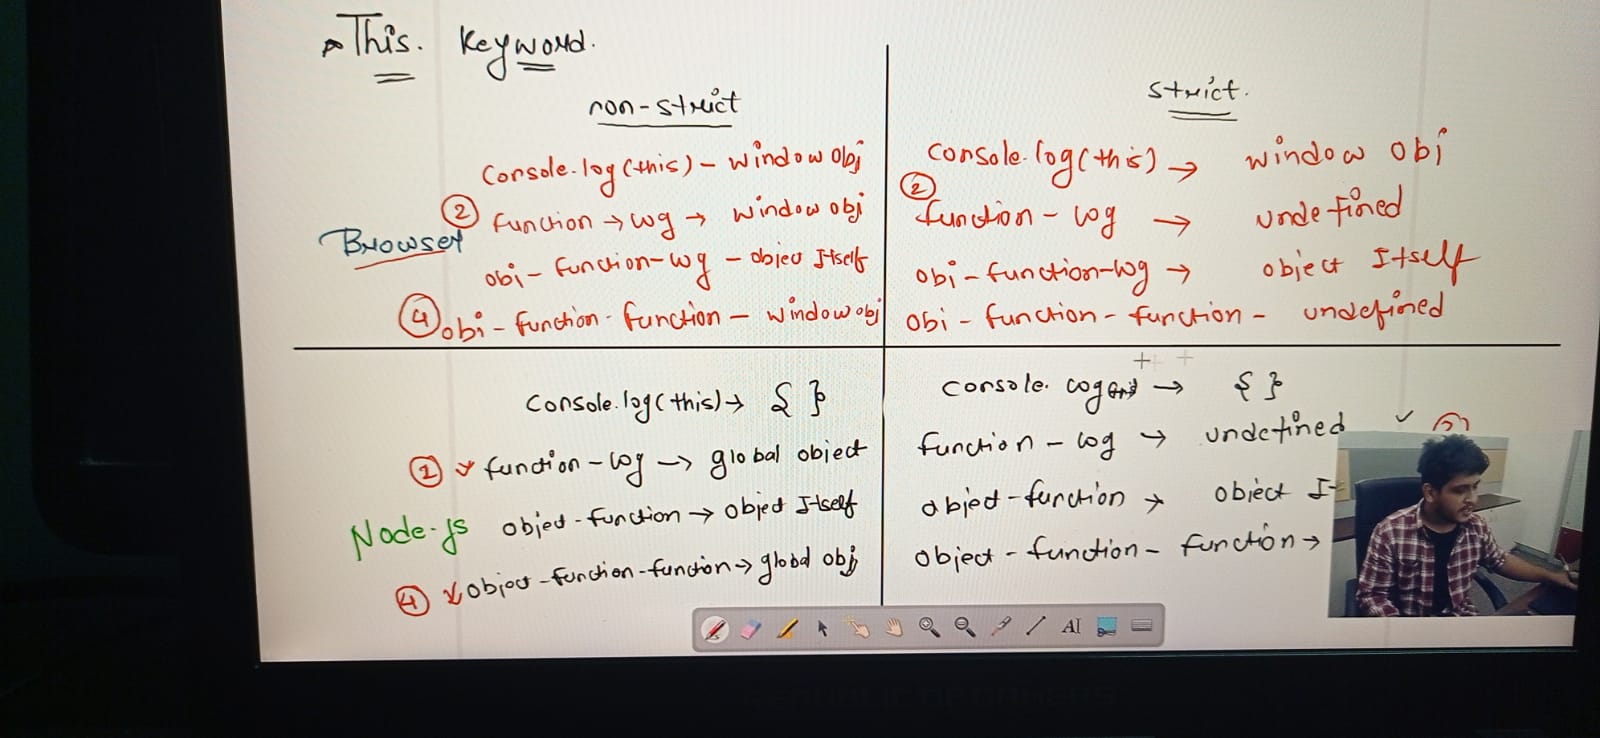 This. Keyword.
non-strict
Console.log(this) - window obj
② function → log → window obj
Browser
obj - function - log - object Itself
④ obj - function - function - window obj
strict.
console.log(this) → window obj
②
function - log → undefined
obj - function - log → object Itself
obj - function - function - undefined
Console.log(this) → { }
② function - log → global object
Node.js object - function → object Itself
④ object - function - function → global obj
console. → { }
function - log → undefined
object - function → object
object - function - function →
AI